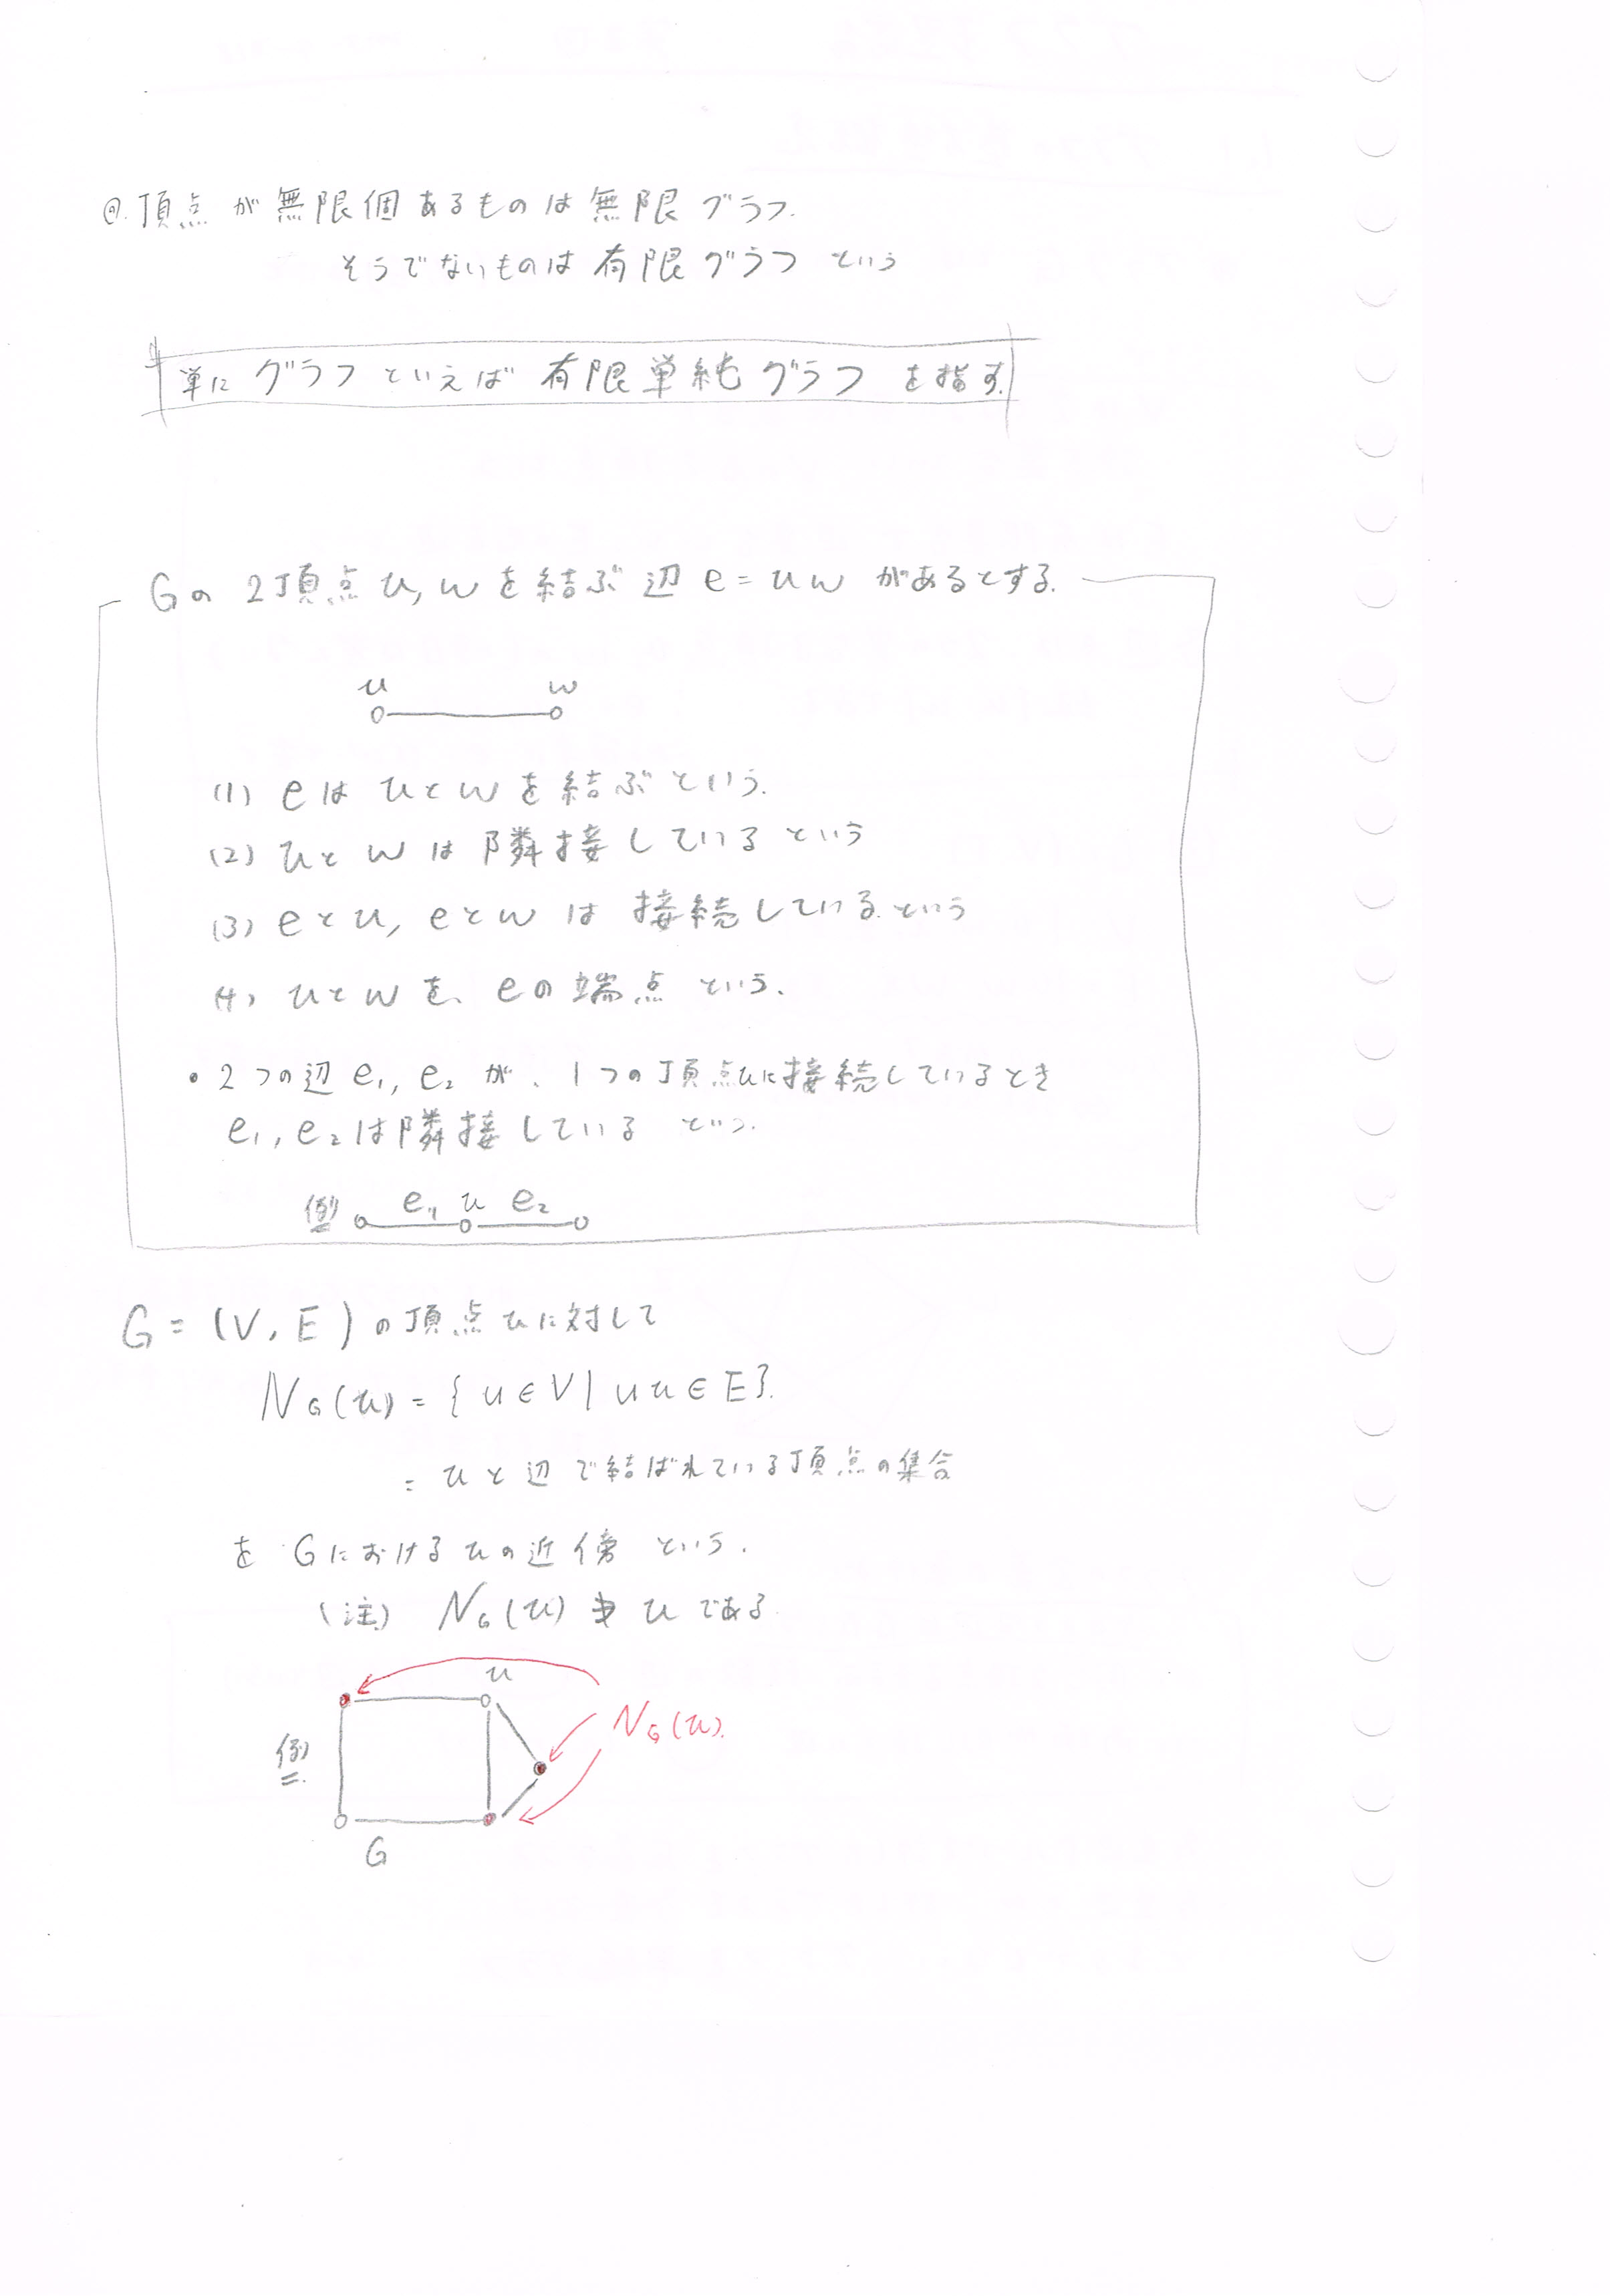 ◎.頂点が無限個あるものは無限グラフ.
そうでないものは有限グラフという
単にグラフといえば有限単純グラフを指す.
Gの2頂点u,wを結ぶ辺e=uwがあるとする.
u w
(1) eはuとwを結ぶという.
(2) uとwは隣接しているという
(3) eとu, eとwは接続している.という
(4) uとwを、eの端点という.
・2つの辺e₁, e₂が、1つの頂点uに接続しているとき
e₁, e₂は隣接しているという.
例) e₁ u e₂
G=(V, E)の頂点uに対して
N_G(u)={u∈V|uu∈E}.
=uと辺で結ばれている頂点の集合
をGにおけるuの近傍という.
(注) N_G(u)∌uである.
u
N_G(u).
例)
G